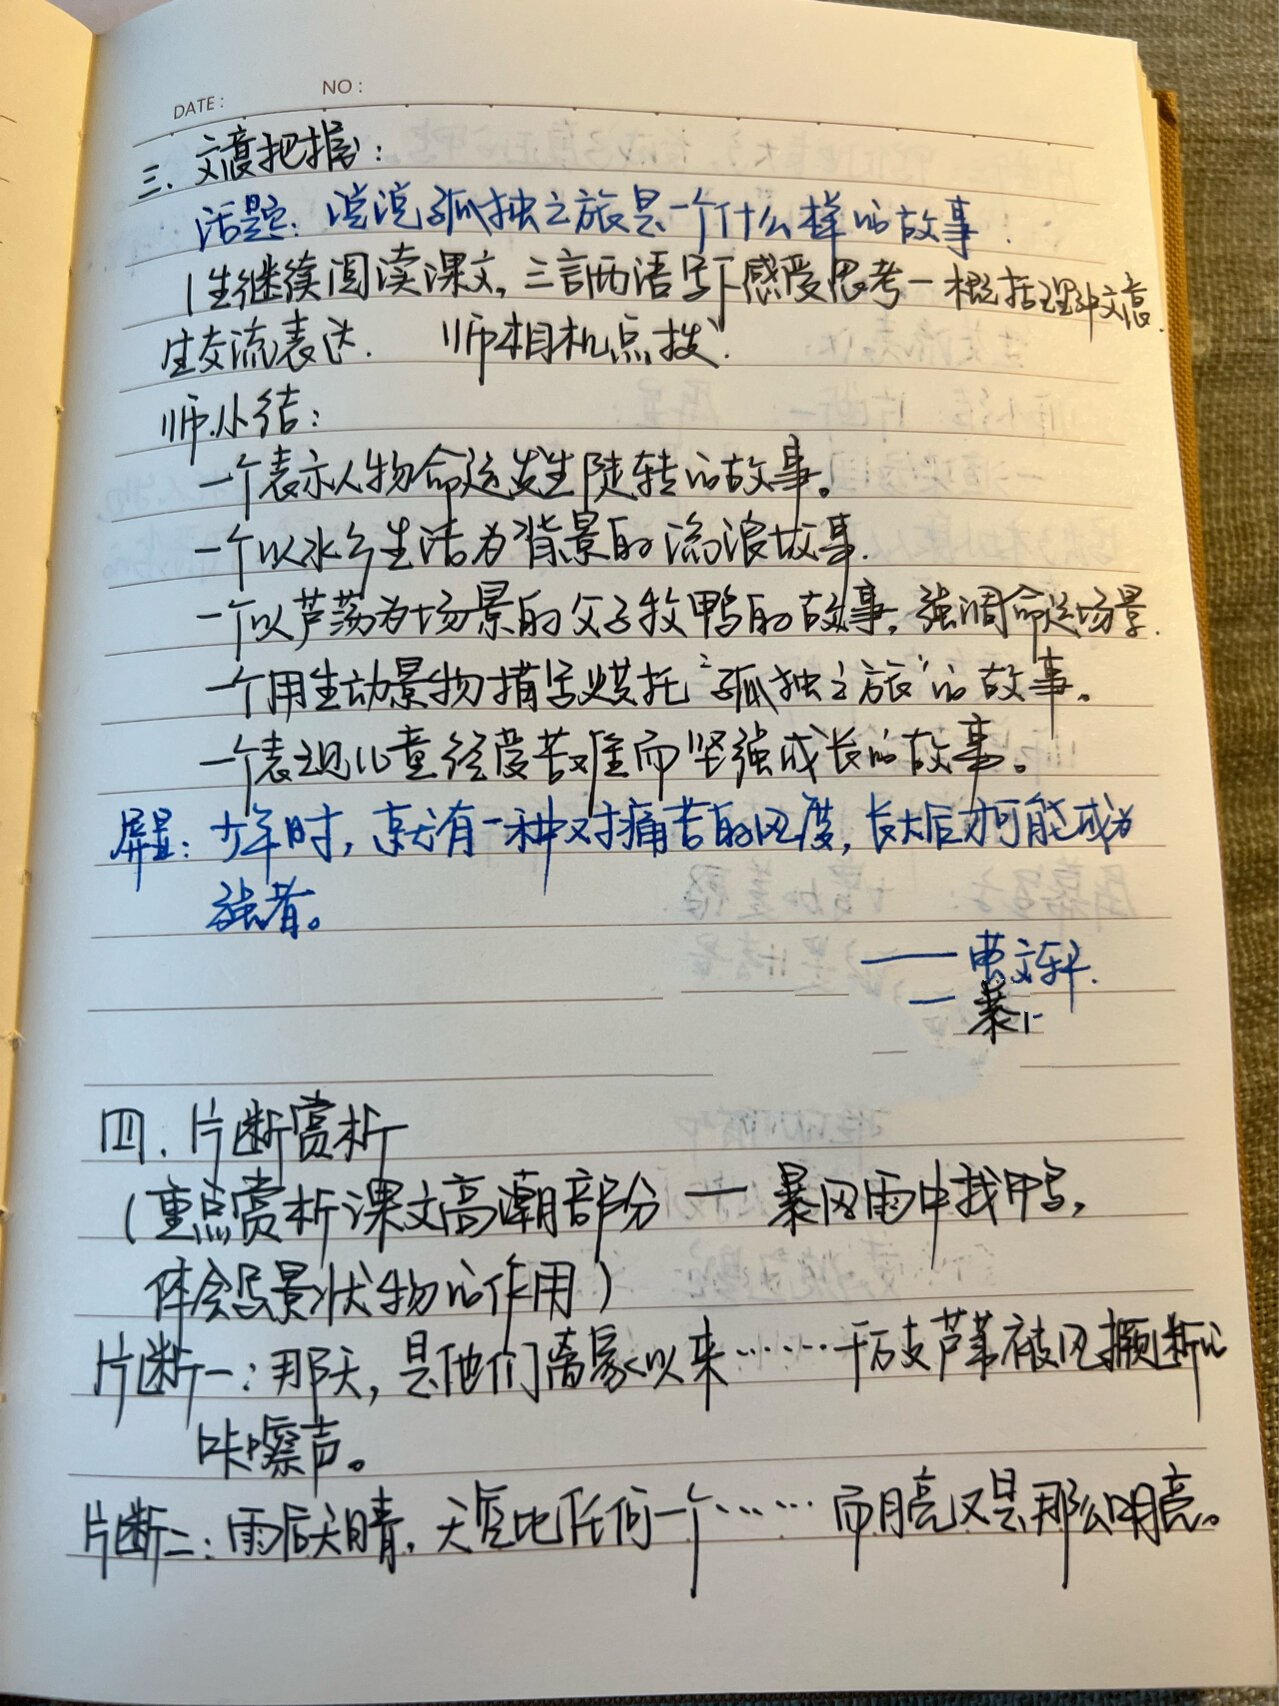 DATE: NO:
三、文意把握：
话题：说说孤独之旅是一个什么样的故事.
(生继续阅读课文，三言两语写下感受思考一概括理解文意.
生交流表达. 师相机点拨.
师小结：
一个表示人物命运发生陡转的故事。
一个以水乡生活为背景的流浪故事.
一个以芦荡为场景的父子牧鸭的故事，强调命运场景.
一个用生动景物描写烘托“孤独之旅”的故事。
一个表现儿童经受苦难而坚强成长的故事。
屏显：少年时，就有一种对痛苦的风度，长大后才可能成为
强者。
——曹文轩.
四.片断赏析
(重点赏析课文高潮部分 — 暴风雨中找鸭，
体会写景状物的作用)
片断一：那天，是他们离家以来……千万支芦苇被风撅断的
咔嚓声。
片断二：雨后天晴，天空比任何一个……而月亮又是那么明亮。